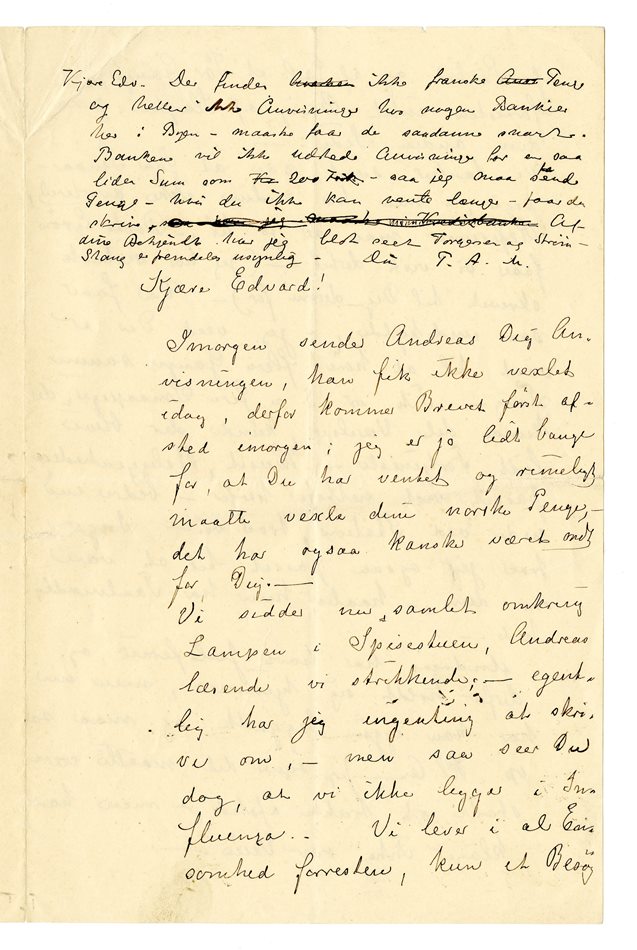 Kjære Edv. Der findes ikke franske Penge
og heller ikke Anvisninger hos nogen Bankier
her i Byen – maaske faar de saadanne snart.
Banken vil ikke udstede Anvisninger for en saa
liden Sum som 200 Frk – saa jeg maa sende
Penge – hvis du ikke kan vente længe – faar du
skrive, Af
dine Bekjendte har jeg blot seet Torgersen og Ström-
Stang er fremdeles usynlig – Din T. A. M.
Kjære Edvard!
Imorgen sender Andreas Dig An-
visningen, han fik ikke vexlet
idag, derfor kommer Brevet först af-
sted imorgen; jeg er jo lidt bange
for, at Du har ventet og rimeligt
maatte vexle dine norske Penge, –
det har ogsaa kanske været ondt
for Dig. –
Vi sidder nu samlet omkring
Lampen i Spisestuen, Andreas
læsende vi strikkende; – egent-
lig har jeg ingenting at skri-
ve om, – men saa seer Du
dog, at vi ikke ligger i In-
fluenza. – Vi lever i al Een-
somhed forresten, kun et Besög